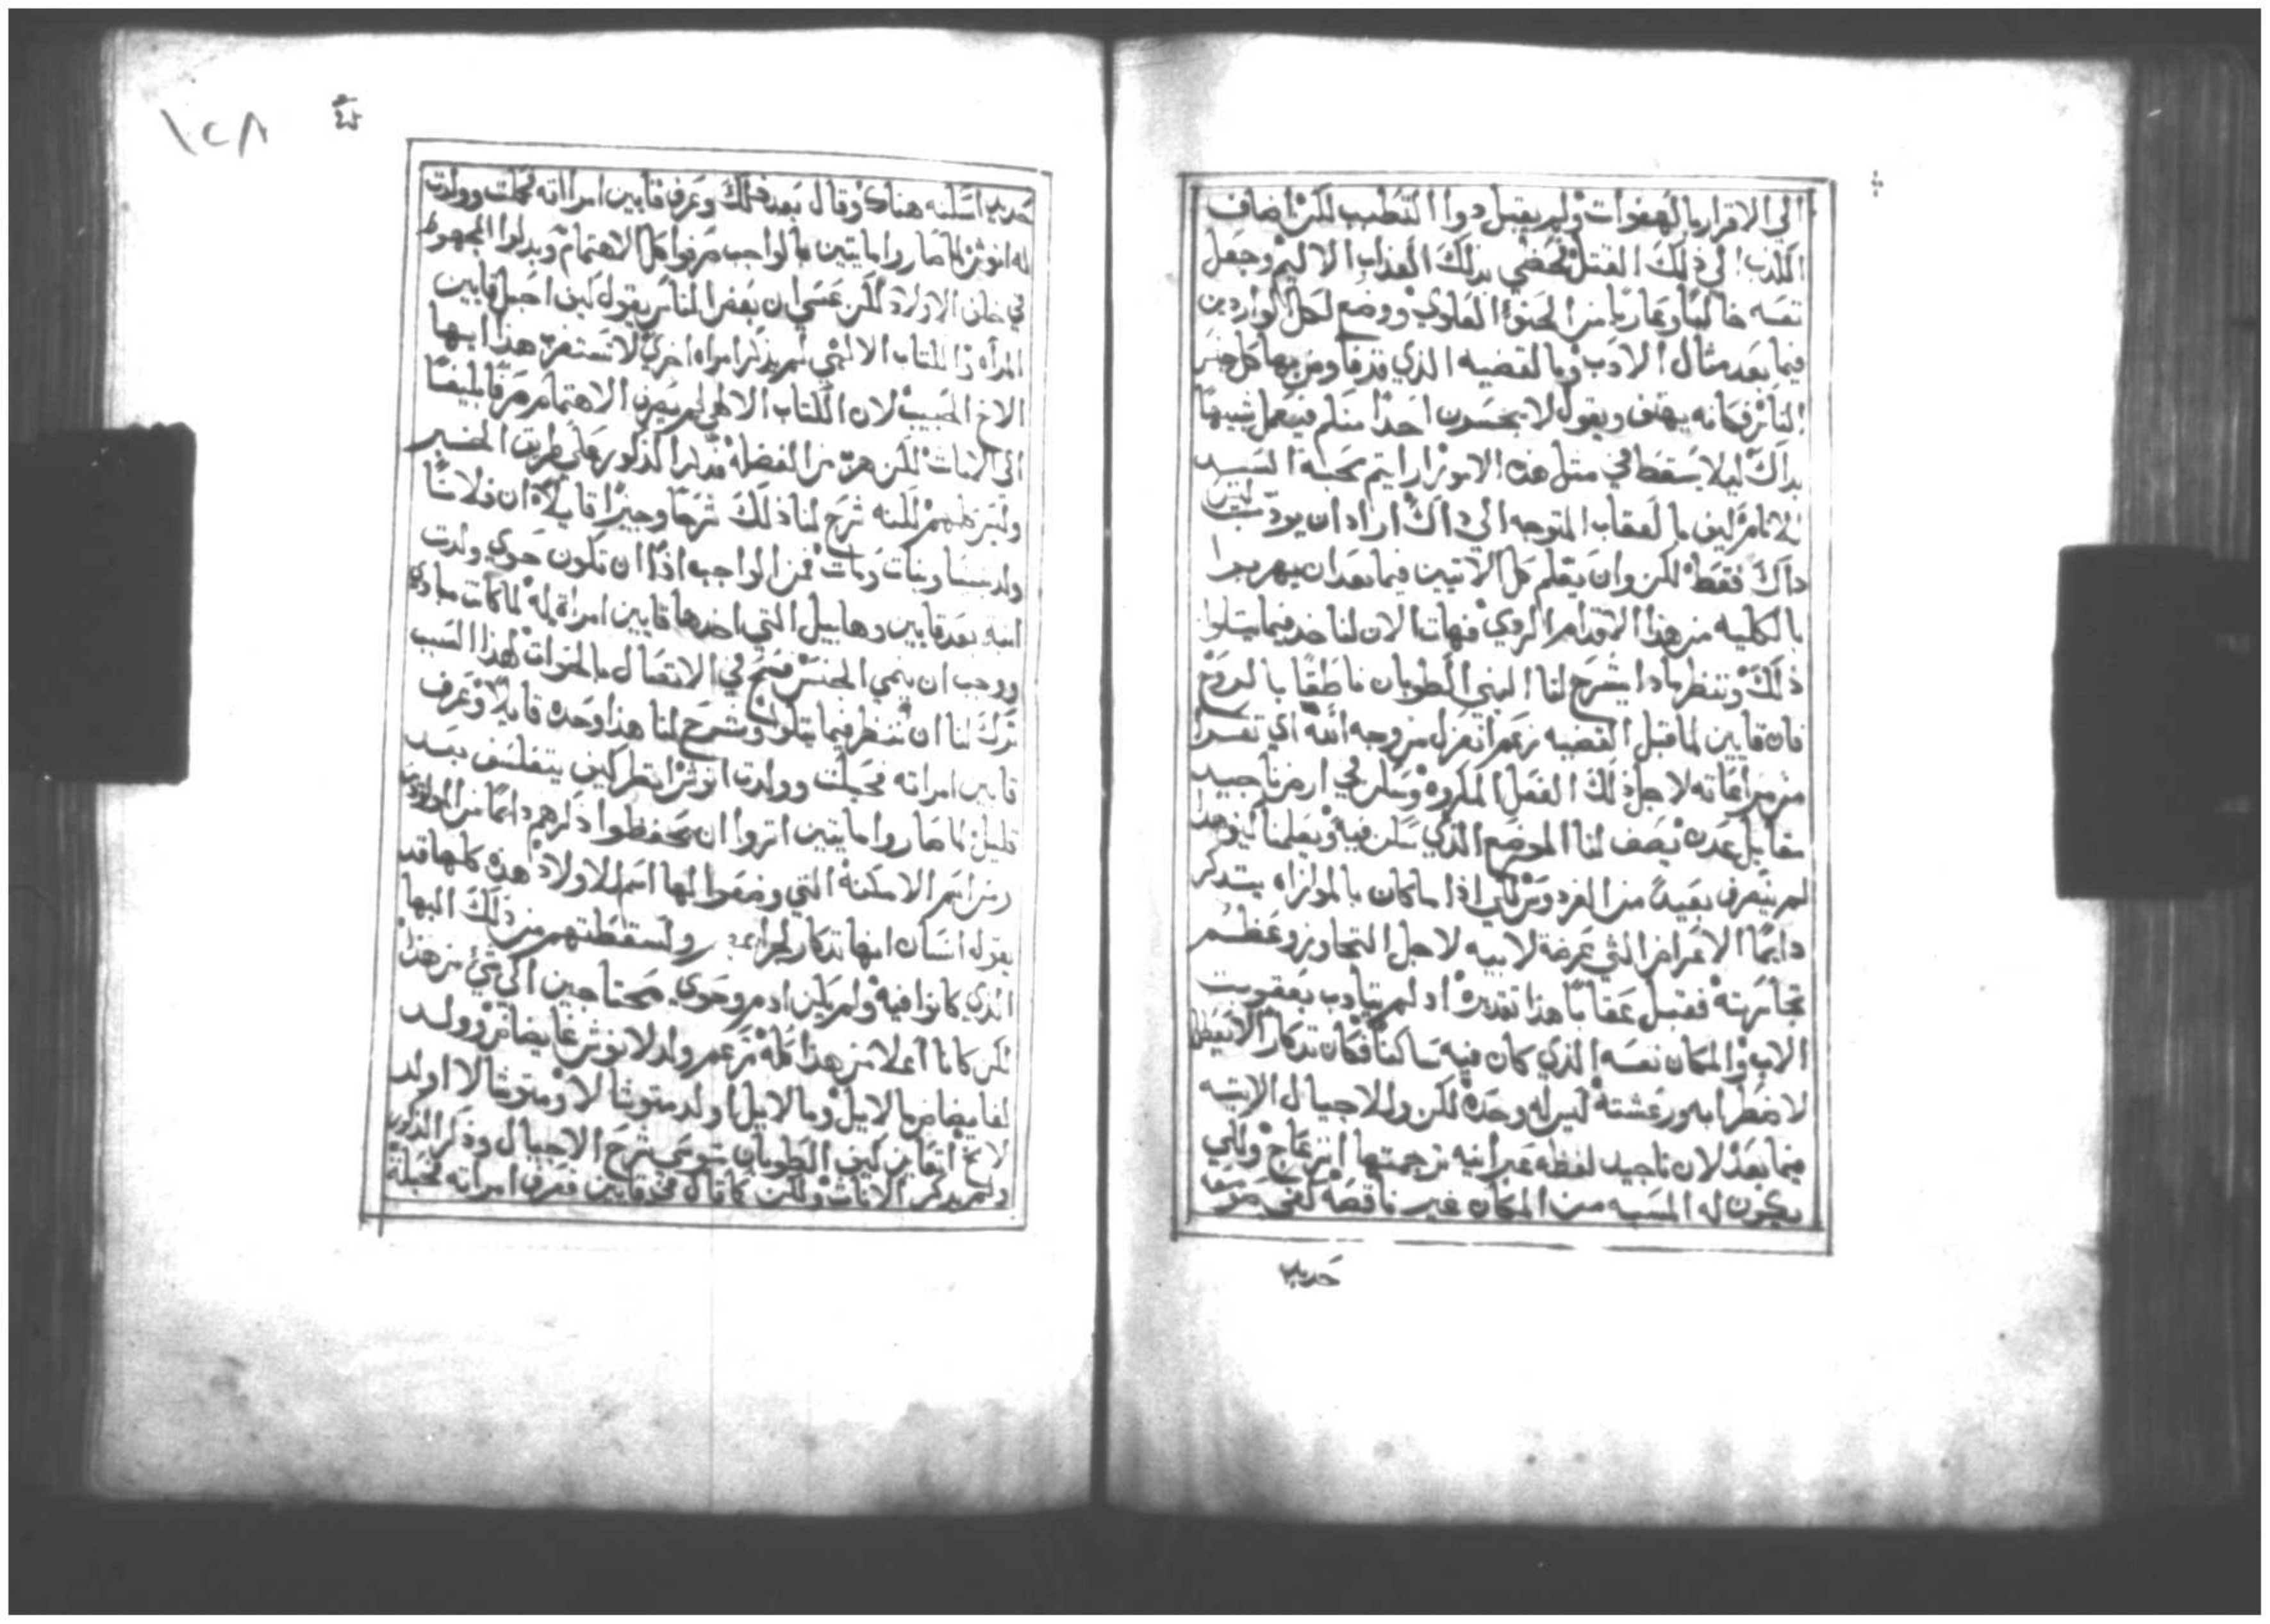 الي الاقرار بالهفوات ولم يقبل دوا التطبب لكن اضاف
الكدب الي ذلك القتل فحضي بذلك العذاب الاليم وجعل
نفسه خاليًا وعاريًا من الحنو العلوي ووضع لكل الواردين
فيما بعد مثال الادب وبالقضيه الذي قدفا ومن بها كل جنس
الناس فكانه يهتف ويقول لا يجسرن احدًا منكم فيعمل شبيهًا
بداك ليلا يسقط في مثل هذه الامور ارايتم محبة السيد
للبشر كيف بالعقاب المتوجه الي داك اراد ان يودب ليس
داك فقط لكن وان يعلم كل الاتيين فيما بعد ان يهربوا
بالكليه من هذا الاقدام الردي فهات الان لنا خد فيما يتلوا
ذلك وننظر مادا يشرح لنا النبي الطوبان ناطقًا بالروح
فان قايين لما قبل القضيه زعم انعزل من وجه الله اي تعرا
من مراعاته لاجل ذلك الفعل المكروه وسكن في ارض ناجيد
مقابل عدن يصف لنا الموضع الذي سكن فيه ويعلمنا كيف هدا
لم ينصرف بعيدًا من الفردوس لكي اذا ما كان بالموازاه يتدكر
دايمًا الاعراض التي عرضة لابيه لاجل التجاوز وعظم
تجاسرته فقبل عقابًا هذا تقديره اد لم يتادب بعقوبت
الاب والمكان نفسه الذي كان فيه ساكنًا فكان تدكارًا لا ينقطع
لاضطرابه ورعشته ليس له وحده لكن وللاجيال الاتيه
فيما بعد لان ناجيد لفظه عبرانيه ترجمتها انزعاج ولكي
يكون له المسبه من المكان غير ناقصه كفي مرتفعا
حديد
١٢٨
حديد اسكنه هناك وقال بعد ذلك وعرف قايين امراته فحبلت وولدت
له انوش لما صاروا مايتين بالواجب صرفوا كل الاهتمام وبدلوا المجهود
في خلف الاولاد لكن عسي ان بعض الناس يقول كيف احبل قايين
المراه والكتاب الالهي لم يذكر امراه اخري لا تستغرب هذا ايها
الاخ الحبيب لان الكتاب الالهي لم يصرف الاهتمام صرفًا بليغًا
الي الاناث لكن هرب من الفضله فدكر الذكور علي طريق الخبر
وليس كلهم لكنه شرح لنا ذلك شرحًا وجيزًا قايلًا ان فلانًا
ولد بنينا وبنات ومات فمن الواجب اذًا ان تكون حوي ولدت
ابنه بعد قايين وهابيل التي اخدها قايين امراة له لما كانت مبادي
ووجب ان ينمي الجنس فسح في الاتصال بالخوات لهذا السبب
ترك لنا ان ننظر فيما يتلوا وشرح لنا هذا وحده قايلًا وعرف
قايين امراته فحبلت وولدت انوش انظر كيف يتفلسف بعد
قليل لما صاروا مايتين اتروا ان يحفظوا دكرهم دايمًا من المولودين
ومن اسم الامكنة التي وضعوا لها اسم الاولاد هذه كلها قد
يقول انسان انها تدكار لجرايم ولسقطتهم من ذلك البها
الذي كانوا فيه ولم يكن ادم وحوي محتاجين الي شي من هذا
لكن كانا اعلا من هذا كله زعم ولد لانوش غايضاض وولد
لغايضاض مالايل ومالايل اولد متوشالا ومتوشالا اولد
لامخ انعاين كيف الطوبان سوعي شرح الاجيال وذكر الذكور
ولم يدكر الاناث ولكن كما قال في قايين فعرف امراته فحبلة